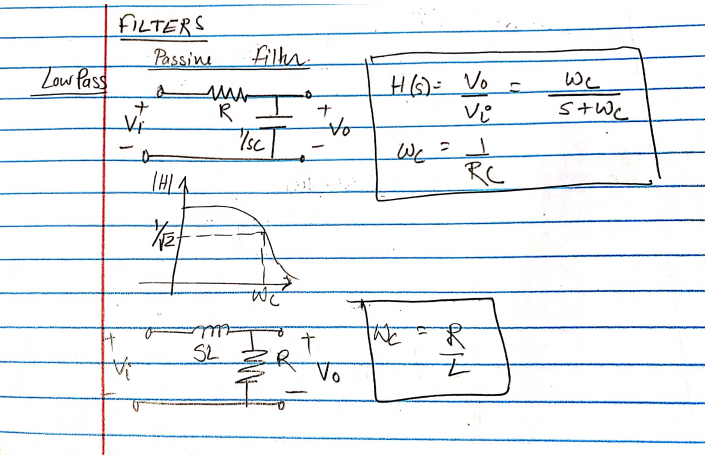 FILTERS
Passive Filter
Low Pass
R
+ Vi -
1/sC
+ Vo -
H(s) = Vo/Vi = ωc/(s+ωc)
ωc = 1/RC
|H|
1/√2
ωc
+ Vi -
SL
R
+ Vo -
ωc = R/L